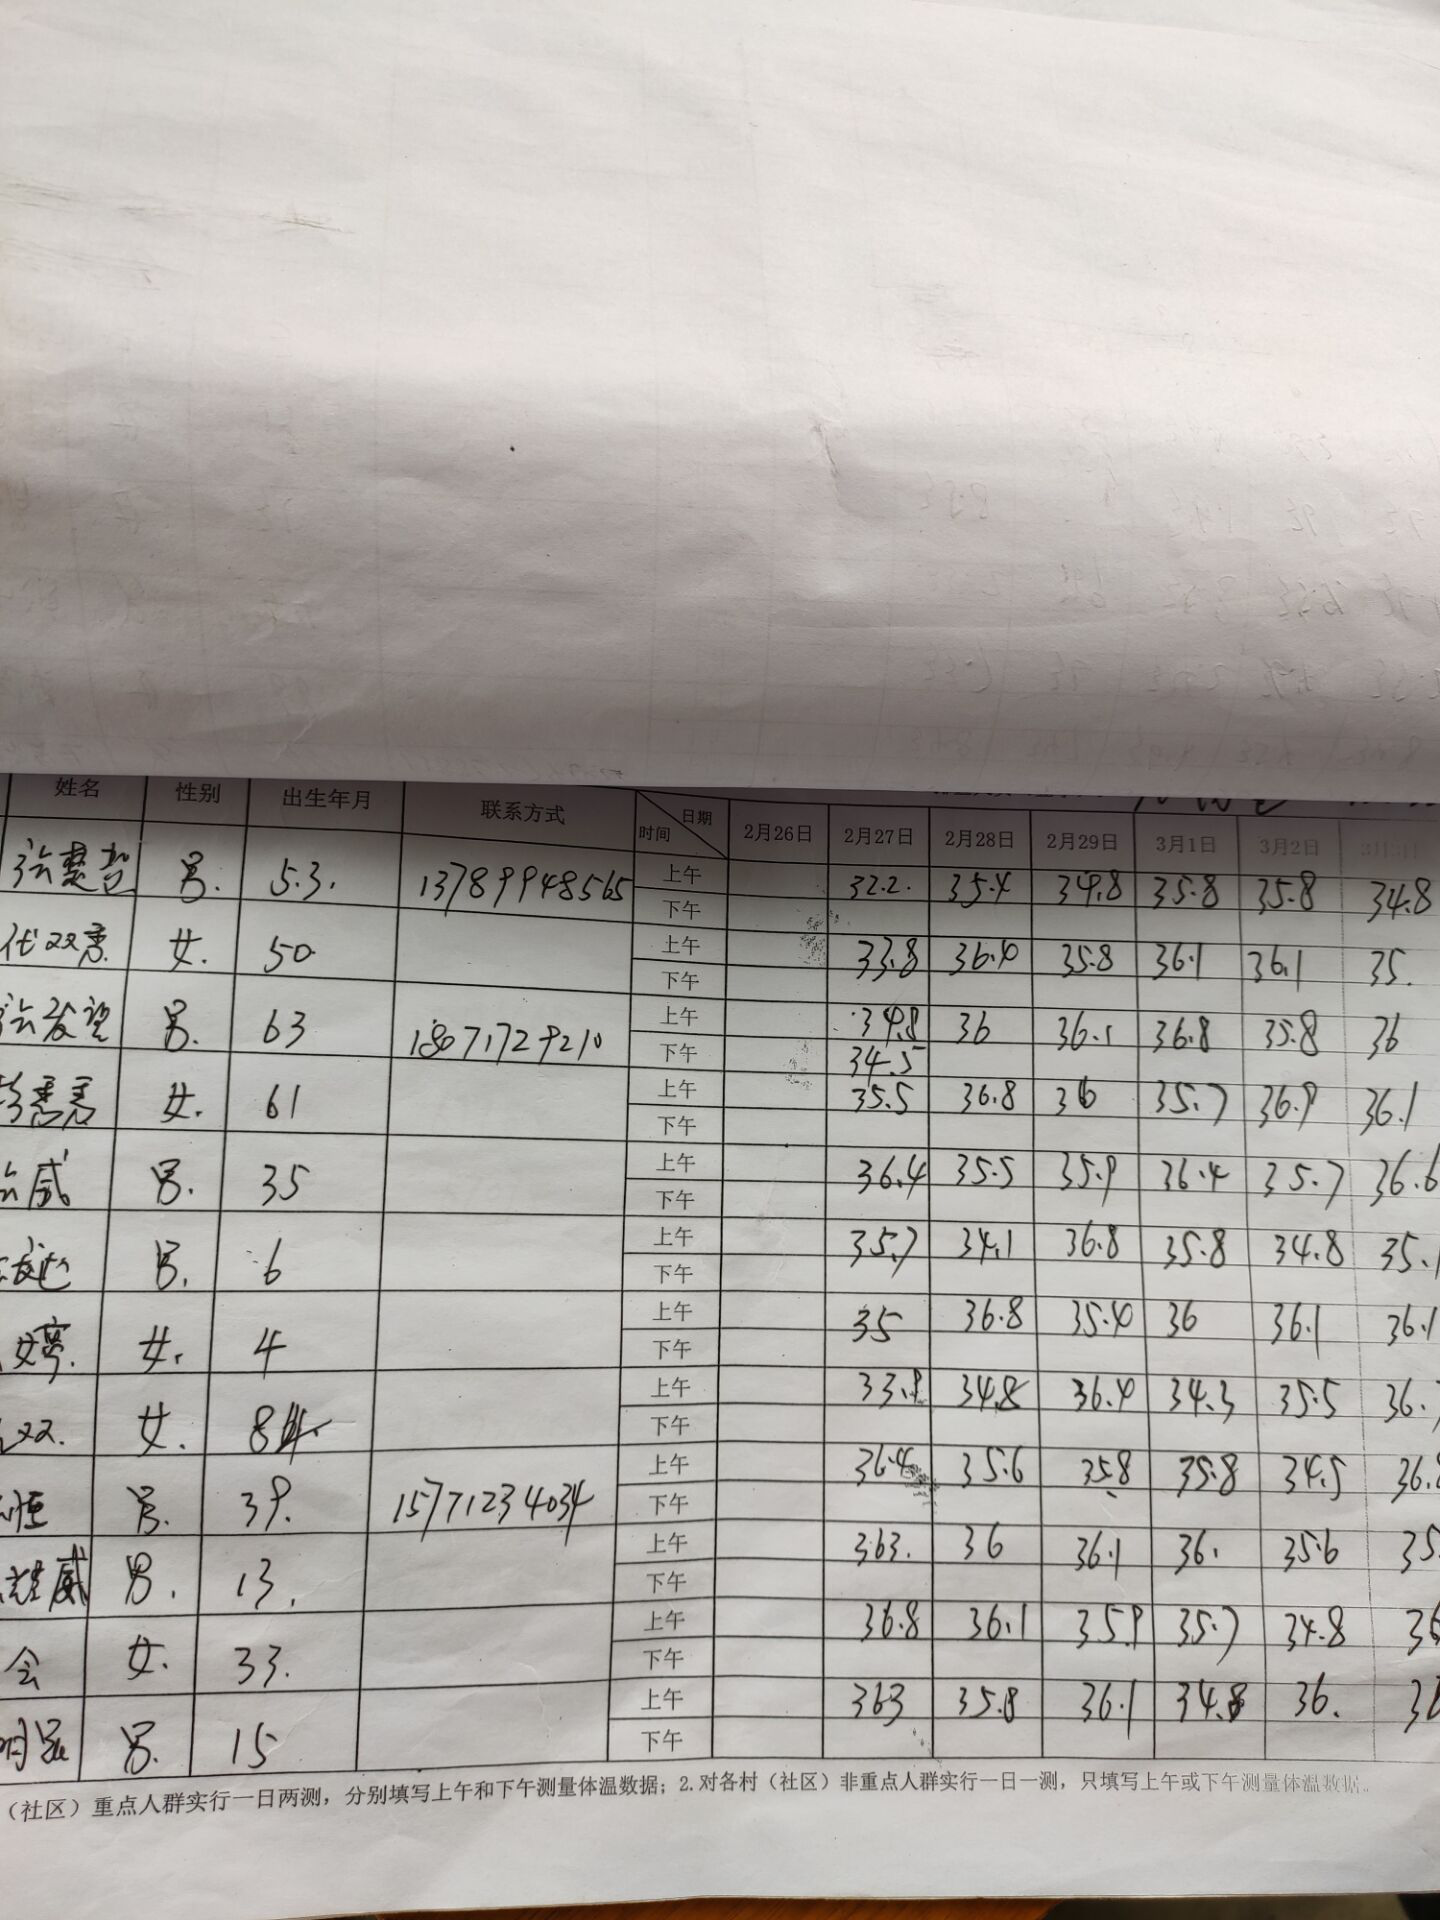 姓名 性别 出生年月 联系方式 日期 时间 2月26日 2月27日 2月28日 2月29日 3月1日 3月2日
男. 53. 13789948565 上午 32.2. 35.4 34.8 35.8 35.8 34.8
下午
代双秀 女. 50 上午 33.8 36.4 35.8 36.1 36.1 35.
下午
男. 63 18071729210 上午 34.8 36 36.1 36.8 35.8 36
下午 34.5
女. 61 上午 35.5 36.8 36 35.7 36.9 36.1
下午
威 男. 35 上午 36.4 35.5 35.9 36.4 35.7 36.6
下午
男. 6 上午 35.7 34.1 36.8 35.8 34.8 35.1
下午
婷. 女. 4 上午 35 36.8 35.4 36 36.1 36.1
下午
双. 女. 8 上午 33.9 34.8 36.4 34.3 35.5 36.
下午
恒 男. 39. 15771234034 上午 36.4 35.6 35.8 35.8 34.5 36.8
下午
威 男. 13. 上午 363. 36 36.1 36. 35.6 35
下午
会 女. 33. 上午 36.8 36.1 35.9 35.7 34.8 36
下午
明 男. 15 上午 363 35.8 36.1 34.8 36.
下午
（社区）重点人群实行一日两测，分别填写上午和下午测量体温数据；2.对各村（社区）非重点人群实行一日一测，只填写上午或下午测量体温数据。